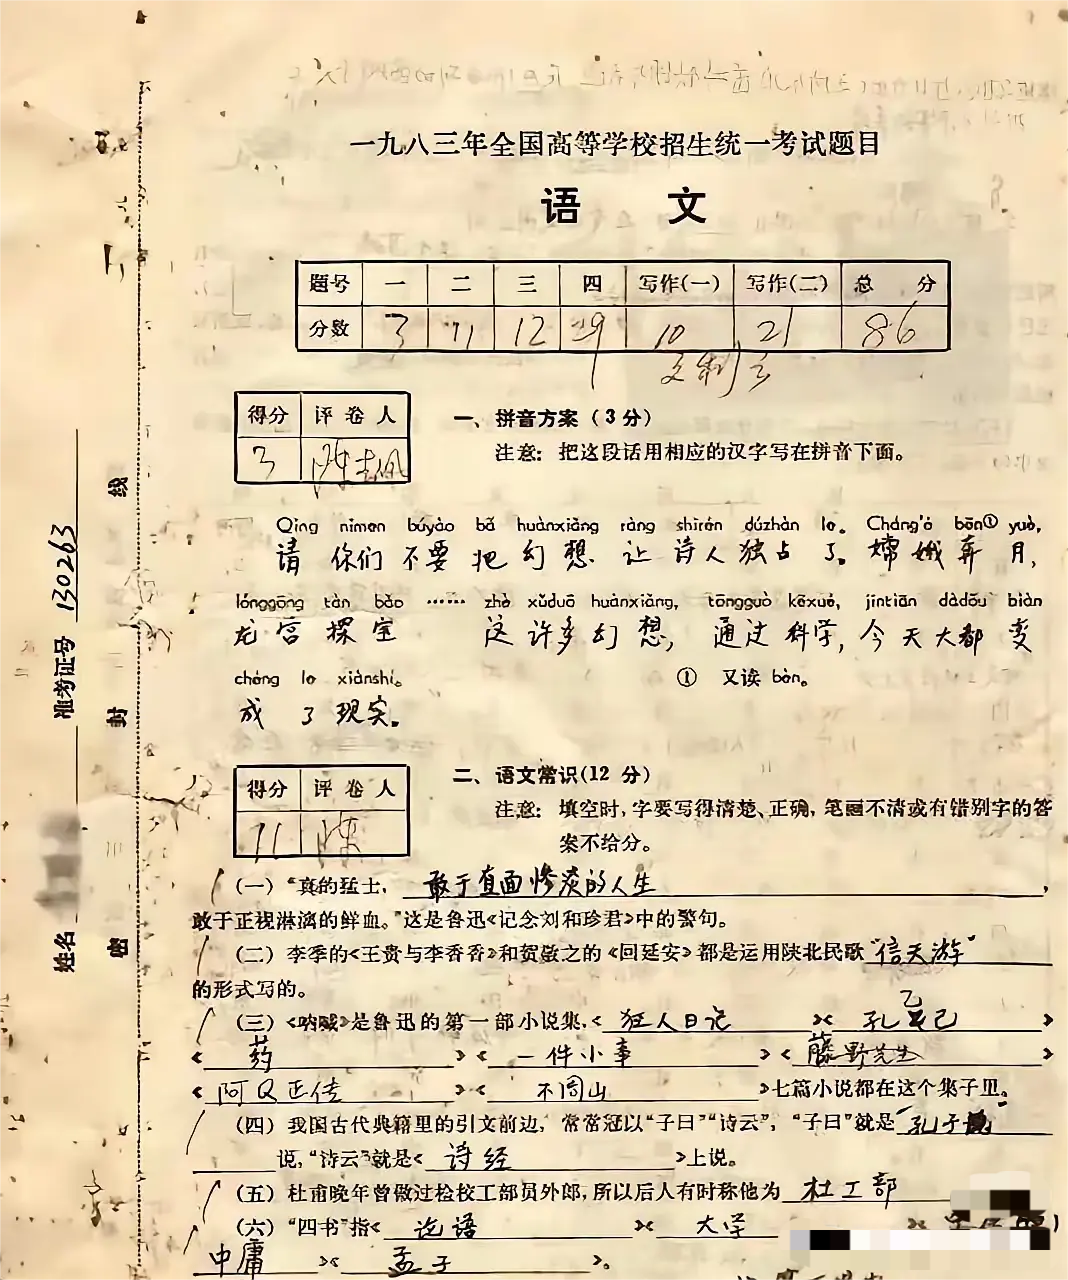 一九八三年全国高等学校招生统一考试题目
语 文
题号 一 二 三 四 写作(一) 写作(二) 总 分
分数 3 11 12 29 10 21 86
得分 评卷人
3
一、拼音方案(3分)
注意：把这段话用相应的汉字写在拼音下面。
Qǐng nǐmen búyào bǎ huànxiǎng ràng shīrén dúzhàn le。 Cháng'é bēn① yuè,
请 你们 不要 把 幻想 让 诗人 独占 了。嫦娥 奔 月,
lónggōng tàn bǎo …… zhè xǔduō huànxiǎng, tōngguò kēxué, jīntiān dàdōu biàn
龙宫 探 宝 这 许多 幻想, 通过 科学, 今天 大都 变
chéng le xiànshí。 ① 又读 bèn。
成 了 现实。
得分 评卷人
11 陈
二、语文常识(12 分)
注意：填空时,字要写得清楚、正确,笔画不清或有错别字的答
案不给分。
(一)“真的猛士, 敢于直面惨淡的人生,
敢于正视淋漓的鲜血。”这是鲁迅《记念刘和珍君》中的警句。
(二)李季的《王贵与李香香》和贺敬之的《回延安》都是运用陕北民歌“信天游”
的形式写的。
(三)《呐喊》是鲁迅的第一部小说集,《狂人日记》《孔乙己》
《药》《一件小事》《藤野先生》
《阿Q正传》《不周山》七篇小说都在这个集子里。
(四)我国古代典籍里的引文前边,常常冠以“子曰”“诗云”,“子曰”就是 孔子
说,“诗云”就是《诗经》上说。
(五)杜甫晚年曾做过检校工部员外郎,所以后人有时称他为 杜工部
(六)“四书”指《论语》《大学》《
中庸》《孟子》。
姓名
准考证号 130263
密 封 线